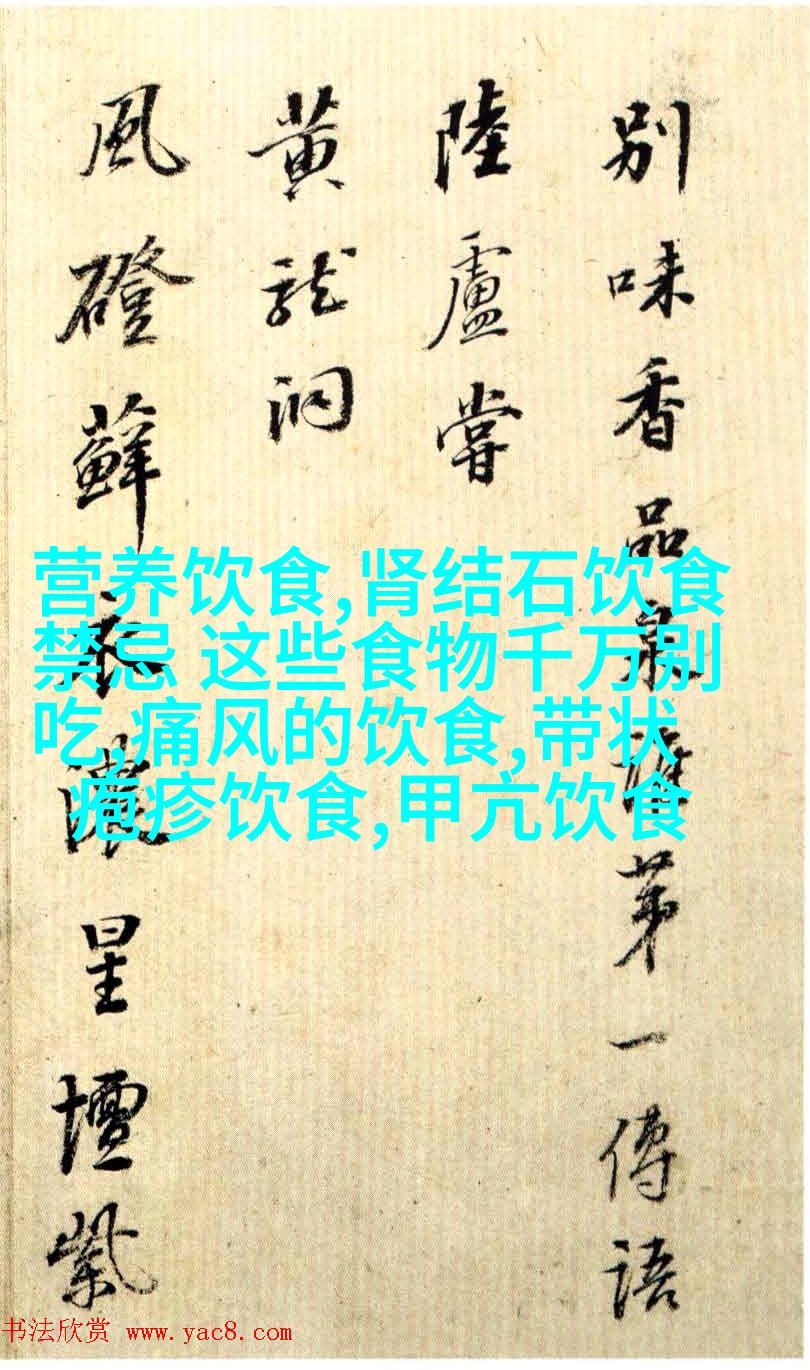 別味香品泉誰第一傳語
陸盧嘗
黄龍洞
風磴蘚衣濃星壇紫
营养饮食,肾结石饮食
禁忌 这些食物千万别
吃,痛风的饮食,带状
疱疹饮食,甲亢饮食
书法欣赏 www.yac8.com